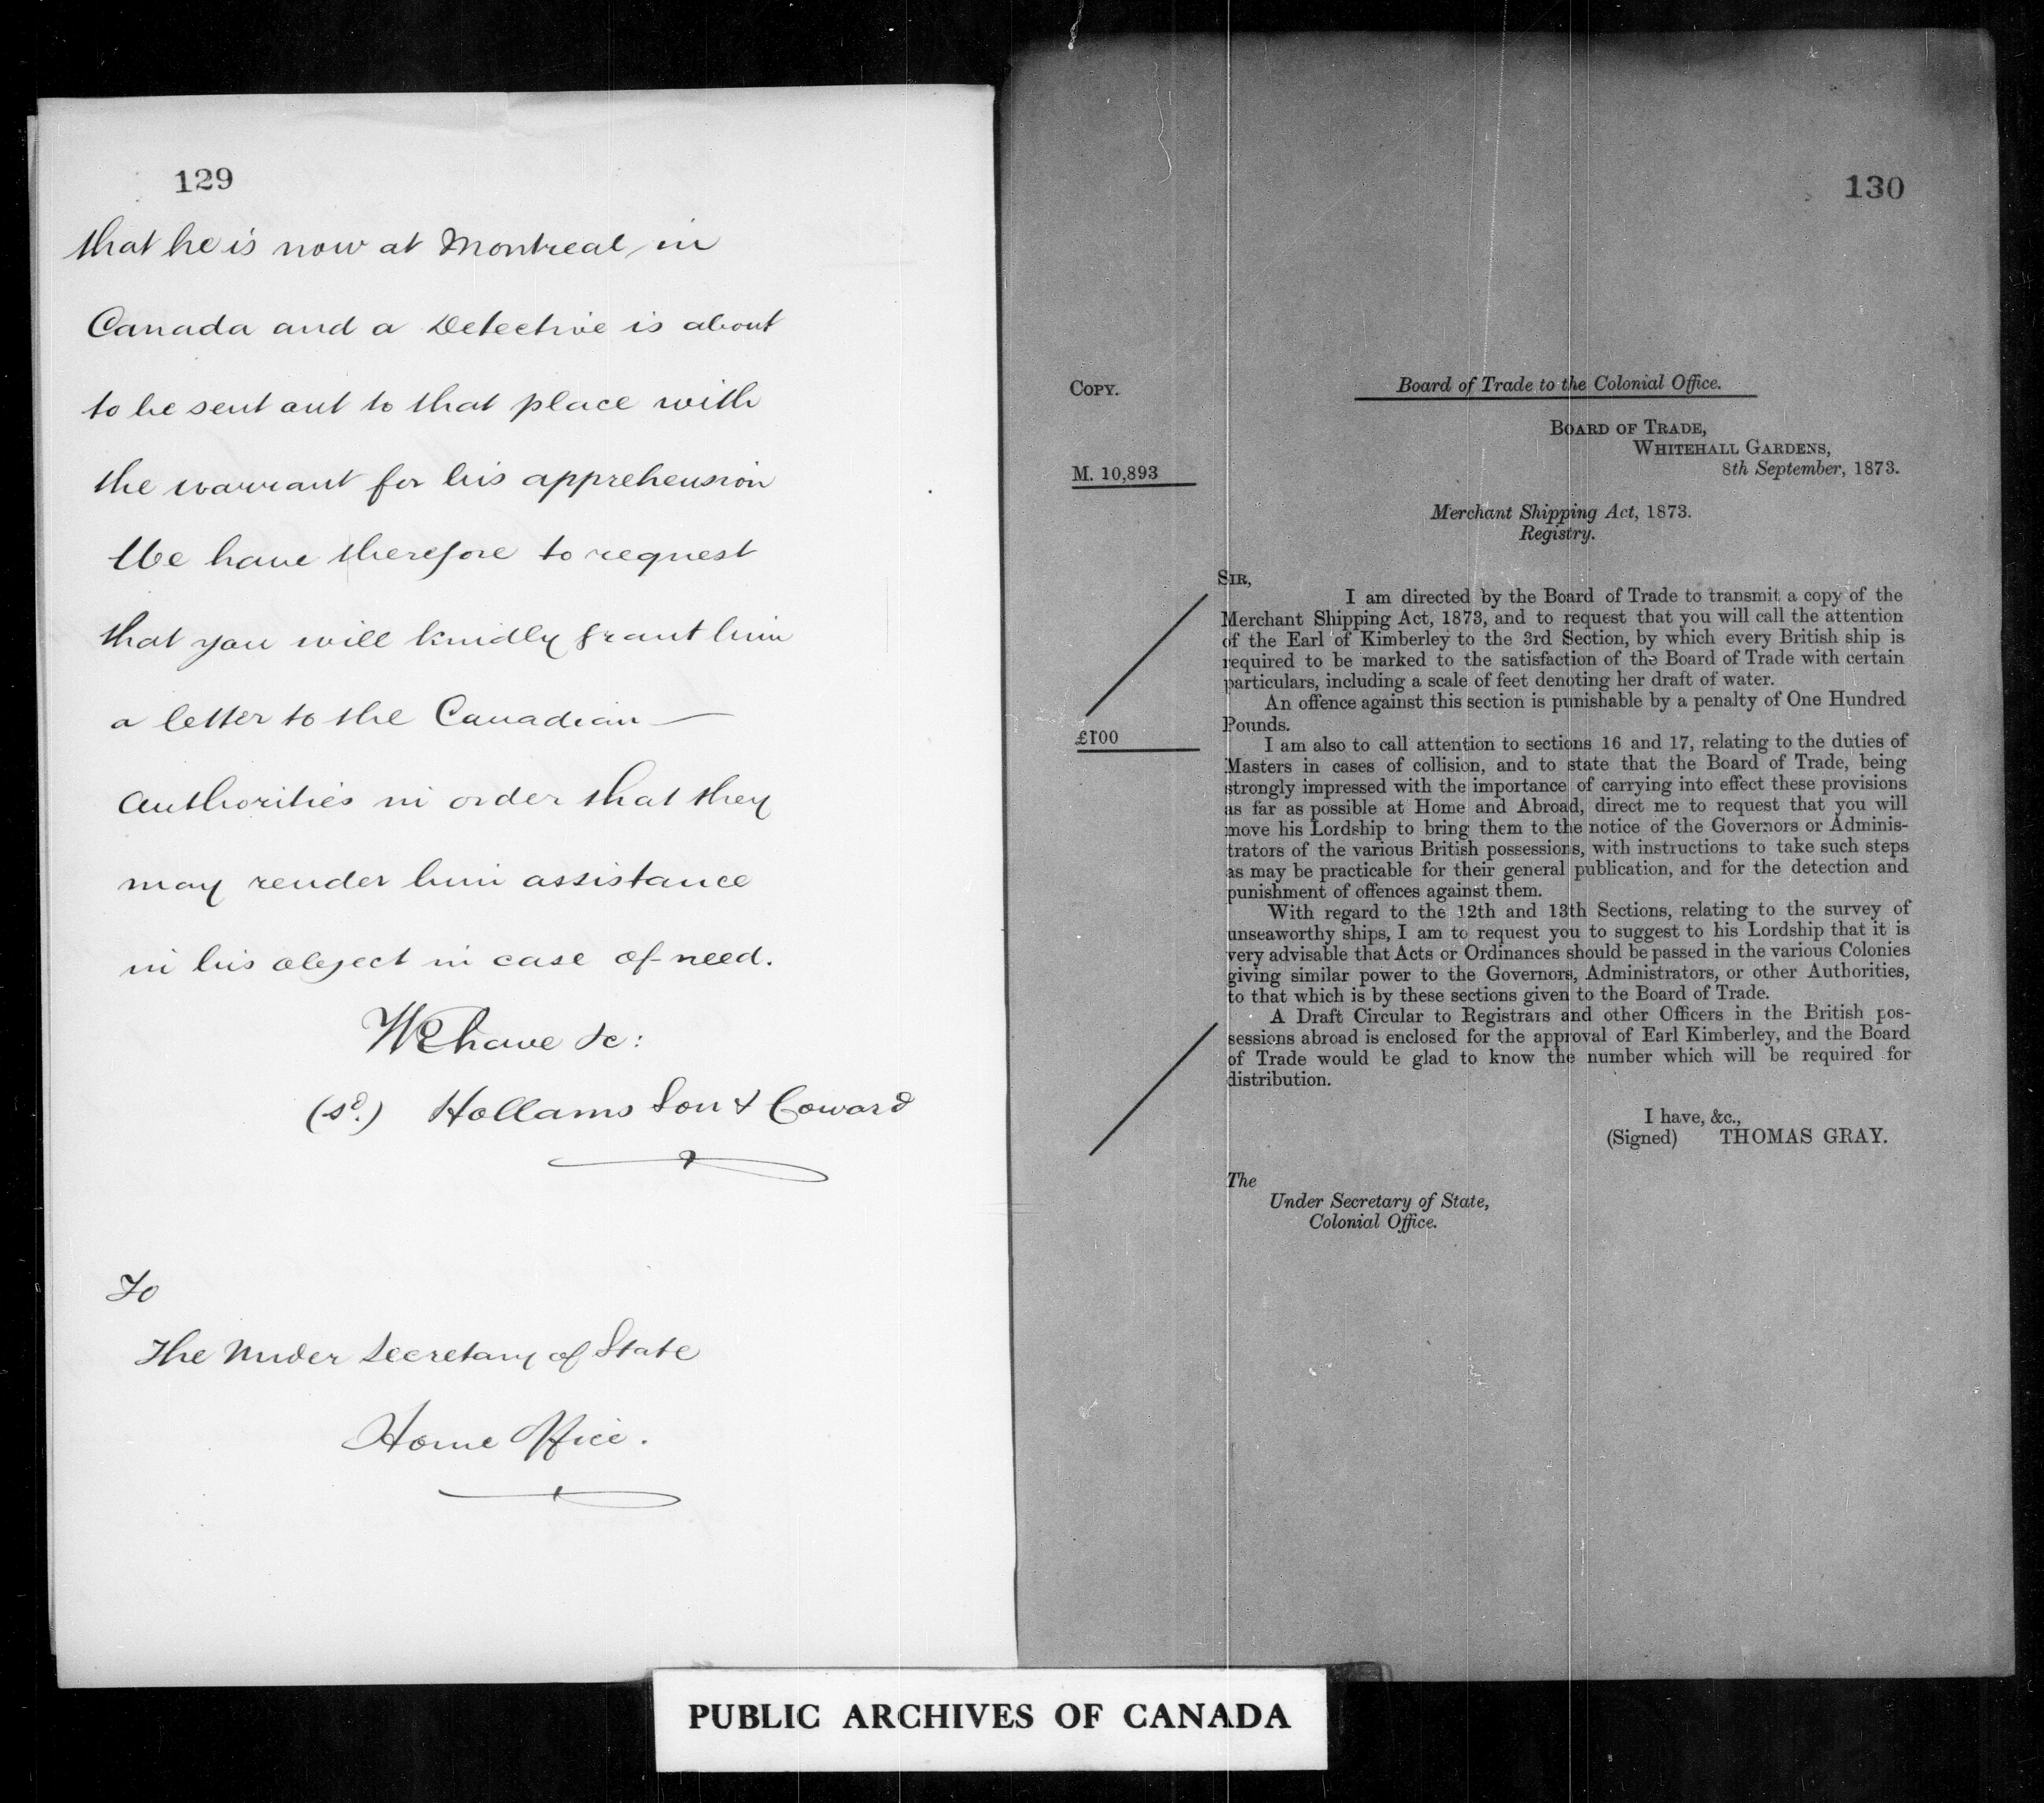 129
that he is now at Montreal in
Canada and a Detective is about
to be sent out to that place with
the warrant for his apprehension
We have therefore to request
that you will kindly grant him
a letter to the Canadian —
Authorities in order that they
may render him assistance
in his object in case of need.
We have &c:
(sd.) Hollams Son & Coward
To
The Under Secretary of State
Home Office.
130
COPY.
Board of Trade to the Colonial Office.
BOARD OF TRADE,
WHITEHALL GARDENS,
8th September, 1873.
M. 10,893
Merchant Shipping Act, 1873.
Registry.
SIR,
I am directed by the Board of Trade to transmit a copy of the
Merchant Shipping Act, 1873, and to request that you will call the attention
of the Earl of Kimberley to the 3rd Section, by which every British ship is
required to be marked to the satisfaction of the Board of Trade with certain
particulars, including a scale of feet denoting her draft of water.
An offence against this section is punishable by a penalty of One Hundred
Pounds.
£100
I am also to call attention to sections 16 and 17, relating to the duties of
Masters in cases of collision, and to state that the Board of Trade, being
strongly impressed with the importance of carrying into effect these provisions
as far as possible at Home and Abroad, direct me to request that you will
move his Lordship to bring them to the notice of the Governors or Adminis-
trators of the various British possessions, with instructions to take such steps
as may be practicable for their general publication, and for the detection and
punishment of offences against them.
With regard to the 12th and 13th Sections, relating to the survey of
unseaworthy ships, I am to request you to suggest to his Lordship that it is
very advisable that Acts or Ordinances should be passed in the various Colonies
giving similar power to the Governors, Administrators, or other Authorities,
to that which is by these sections given to the Board of Trade.
A Draft Circular to Registrars and other Officers in the British pos-
sessions abroad is enclosed for the approval of Earl Kimberley, and the Board
of Trade would be glad to know the number which will be required for
distribution.
I have, &c.,
(Signed) THOMAS GRAY.
The
Under Secretary of State,
Colonial Office.
PUBLIC ARCHIVES OF CANADA